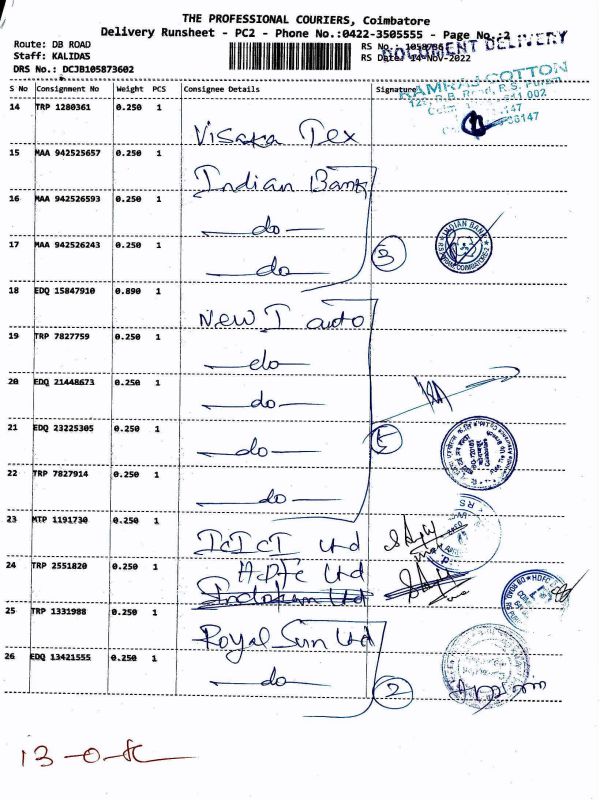 THE PROFESSIONAL COURIERS, Coimbatore
Delivery Runsheet - PC2 - Phone No.:0422-3505555 - Page No.:2
Route: DB ROAD
Staff: KALIDAS
DRS No.: DCJB105873602
RS No.: 1058736
RS Date: 14-Nov-2022
DOCUMENT DELIVERY
S No Consignment No Weight PCS Consignee Details Signature
RAMRAJ COTTON
14 TRP 1280361 0.250 1 Visaka Tex
15 MAA 942525657 0.250 1 Indian Bank
16 MAA 942526593 0.250 1 do
17 MAA 942526243 0.250 1 do 3
INDIAN BANK
18 EDQ 15847910 0.890 1 New I auto
19 TRP 7827759 0.250 1 do
20 EDQ 21448673 0.250 1 do
21 EDQ 23225305 0.250 1 do 5
22 TRP 7827914 0.250 1 do
23 MTP 1191730 0.250 1 ICICI Ltd
24 TRP 2551820 0.250 1 HDFC Ltd
25 TRP 1331988 0.250 1 Royal Sun Ltd
26 EDQ 13421555 0.250 1 do 2
13-0-K